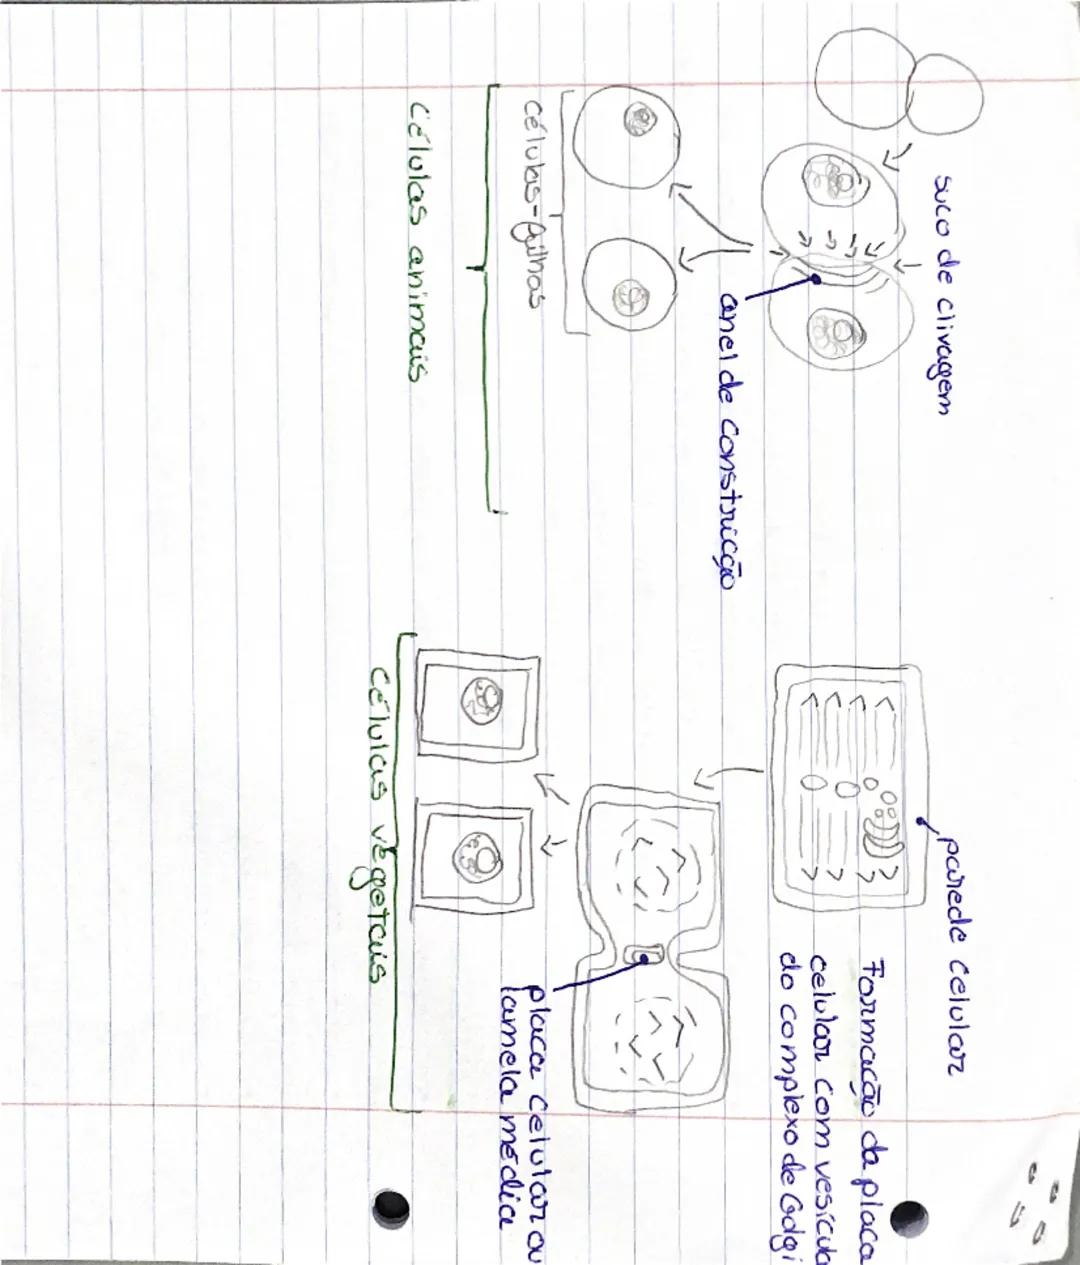 suco de clivagem
anel de constricção
células-filhas
células animais
parede celular
Formação da placa
celular com vesícula
do complexo de Golgi
placa celular ou
lamela média
células vegetais